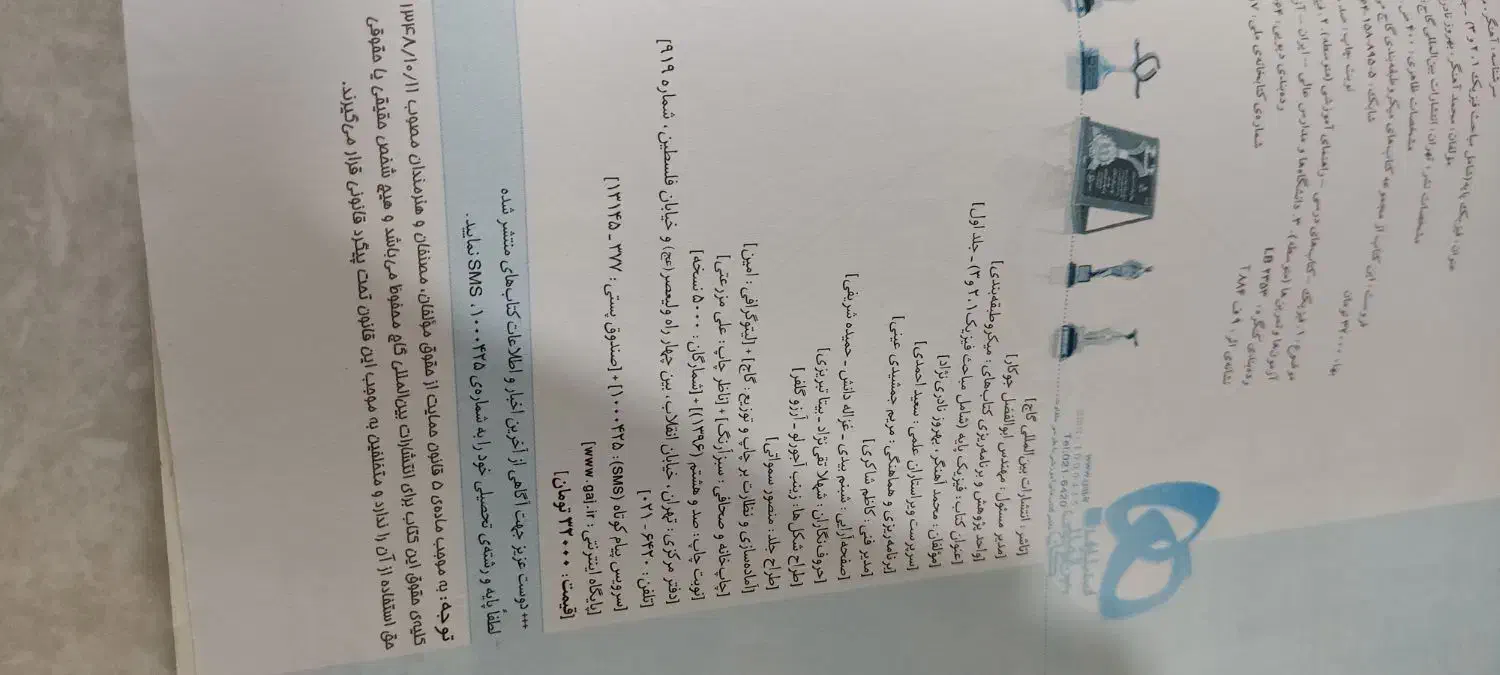 سرشناسه: آهنگر،
عنوان: فیزیک پایه (شامل مباحث فیزیک ۱، ۲ و ۳)
مؤلفان: محمد آهنگر، بهروز نادری
مشخصات نشر: تهران: انتشارات بین‌المللی گاج
مشخصات ظاهری: ۴۰۰ ص
فروست: این کتاب از مجموعه کتاب‌های میکرو طبقه‌بندی گاج
شابک:
نوبت چاپ: صد
بها: ۳۲۰۰۰ تومان
موضوع: ۱. فیزیک - کتاب‌های درسی - راهنمای آموزشی (متوسطه). ۲.
آزمون‌ها و تمرین‌ها (متوسطه). ۳. دانشگاه‌ها و مدارس عالی - ایران -
رده‌بندی کنگره: LB ۲۳۵۳
رده‌بندی دیویی:
نشانه‌ی اثر: ۹ ف ۸۸۴
شماره‌ی کتابخانه‌ی ملی:
انتشارات
بین‌المللی
گاج
www.gaj.ir
Tel:021-6420
[ناشر: انتشارات بین‌المللی گاج]
[مدیر مسئول: مهندس ابوالفضل جوکار]
[واحد پژوهش و برنامه‌ریزی کتاب‌های: میکروطبقه‌بندی]
[عنوان کتاب: فیزیک پایه (شامل مباحث فیزیک ۱، ۲ و ۳) - جلد اول]
[مؤلفان: محمد آهنگر، بهروز نادری‌نژاد]
[سرپرست ویراستاران علمی: سعید احمدی]
[برنامه‌ریزی و هماهنگی: مریم جمشیدی عینی]
[مدیر فنی: کاظم شاکری]
[صفحه‌آرایی: شبنم بیدی - غزاله دانش - حمیده شریفی]
[حروف‌نگاران: شهلا تقی‌نژاد - بیتا تبریزی]
[طراح شکل‌ها: زینب آجورلو - آرزو گلفر]
[طراح جلد: منصور سمواتی]
[آماده‌سازی و نظارت بر چاپ و توزیع: گاج] + [لیتوگرافی: امین]
[چاپخانه و صحافی: سبزآرنگ] + [ناظر چاپ: علی مزرعتی]
[نوبت چاپ: صد و هشتم (۱۳۹۶)] + [شمارگان: ۵۰۰۰ نسخه]
[دفتر مرکزی: تهران، خیابان انقلاب، بین چهار راه ولیعصر (عج) و خیابان فلسطین، شماره ۹۱۹]
[تلفن: ۶۴۲۰ - ۰۲۱]
[سرویس پیام کوتاه (SMS): ۱۰۰۰۴۲۵] + [صندوق پستی: ۳۷۷ - ۱۳۱۴۵]
[پایگاه اینترنتی: www.gaj.ir]
[قیمت: ۳۲۰۰۰ تومان]
+++ دوست عزیز جهت آگاهی از آخرین اخبار و اطلاعات کتاب‌های منتشر شده
لطفاً پایه و رشته‌ی تحصیلی خود را به شماره‌ی ۱۰۰۰۴۲۵، SMS نمایید.
توجه: به موجب ماده‌ی ۵ قانون حمایت از حقوق مؤلفان، مصنفان و هنرمندان مصوب ۱۳۴۸/۱۰/۱۱
کلیه‌ی حقوق این کتاب برای انتشارات بین‌المللی گاج محفوظ می‌باشد و هیچ شخص حقیقی یا حقوقی
حق استفاده از آن را ندارد و متخلفین به موجب این قانون تحت پیگرد قانونی قرار می‌گیرند.